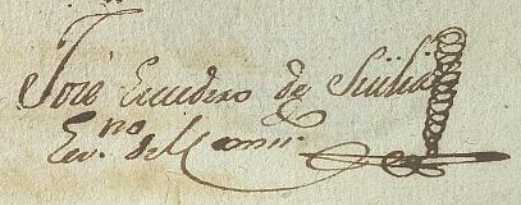 José Escudero de Sicilia
Esc.no de Cam.